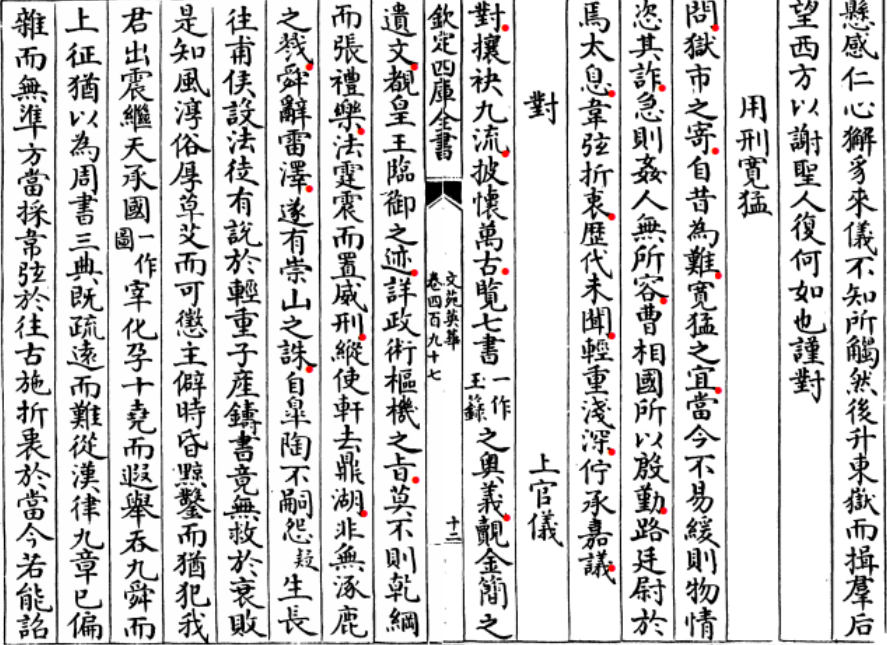 懸感仁心獬豸來儀不知所觸然後升東獄而揖羣后
望西方以謝聖人復何如也謹對
用刑寛猛
問獄市之寄自昔為難寛猛之宜當今不易緩則物情
恣其詐急則姦人無所容曹相國所以殷勤路廷尉於
焉太息韋弦折衷歴代未聞輕重淺深佇承嘉議
對 上官儀
對攘袂九流披懷萬古覽七書一作玉籙之奥義覿金簡之
欽定四庫全書 文苑英華 卷四百九十七 十二
遺文覩皇王臨御之迹詳政術樞機之旨莫不則乾綱
而張禮樂法霆震而置威刑縱使軒去鼎湖非無涿鹿
之戮舜辭雷澤遂有崇山之誅自臯陶不嗣怨疑生長
往甫侯設法徒有說於輕重子産鑄書竟無救於衰敗
是知風淳俗厚草艾而可懲主僻時昏黥鑿而猶犯我
君出震繼天承國一作圖宰化孕十堯而遐舉吞九舜而
上征猶以為周書三典既疏遠而難從漢律九章已偏
雜而無準方當採韋弦於往古施折衷於當今若能詔